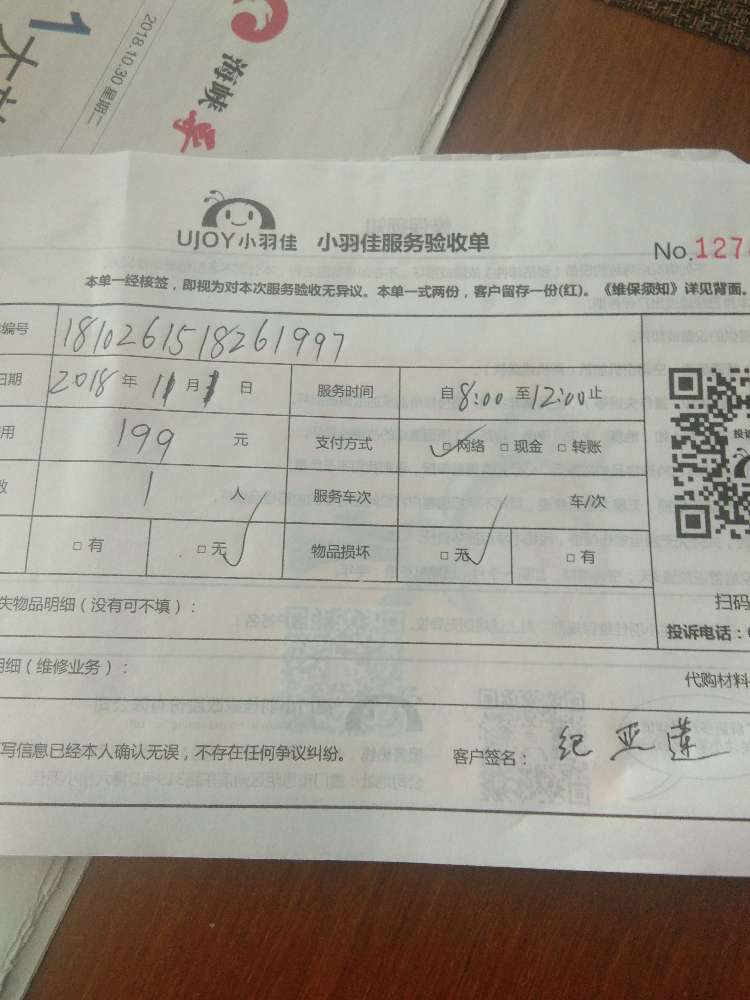 2018.10.30 星期二
海峡
UJOY小羽佳 小羽佳服务验收单
No.127
本单一经核签，即视为对本次服务验收无异议。本单一式两份，客户留存一份(红)。《维保须知》详见背面。
编号 181026151826199７
日期 2018 年 11 月 1 日 服务时间 自 8:00 至 12:00 止
用 199 元 支付方式 □网络 □现金 □转账
数 1 人 服务车次 车/次
□有 □无 物品损坏 □无 □有
失物品明细（没有可不填）：
扫码
投诉电话：
明细（维修业务）：
代购材料
写信息已经本人确认无误，不存在任何争议纠纷。
客户签名： 纪亚莲